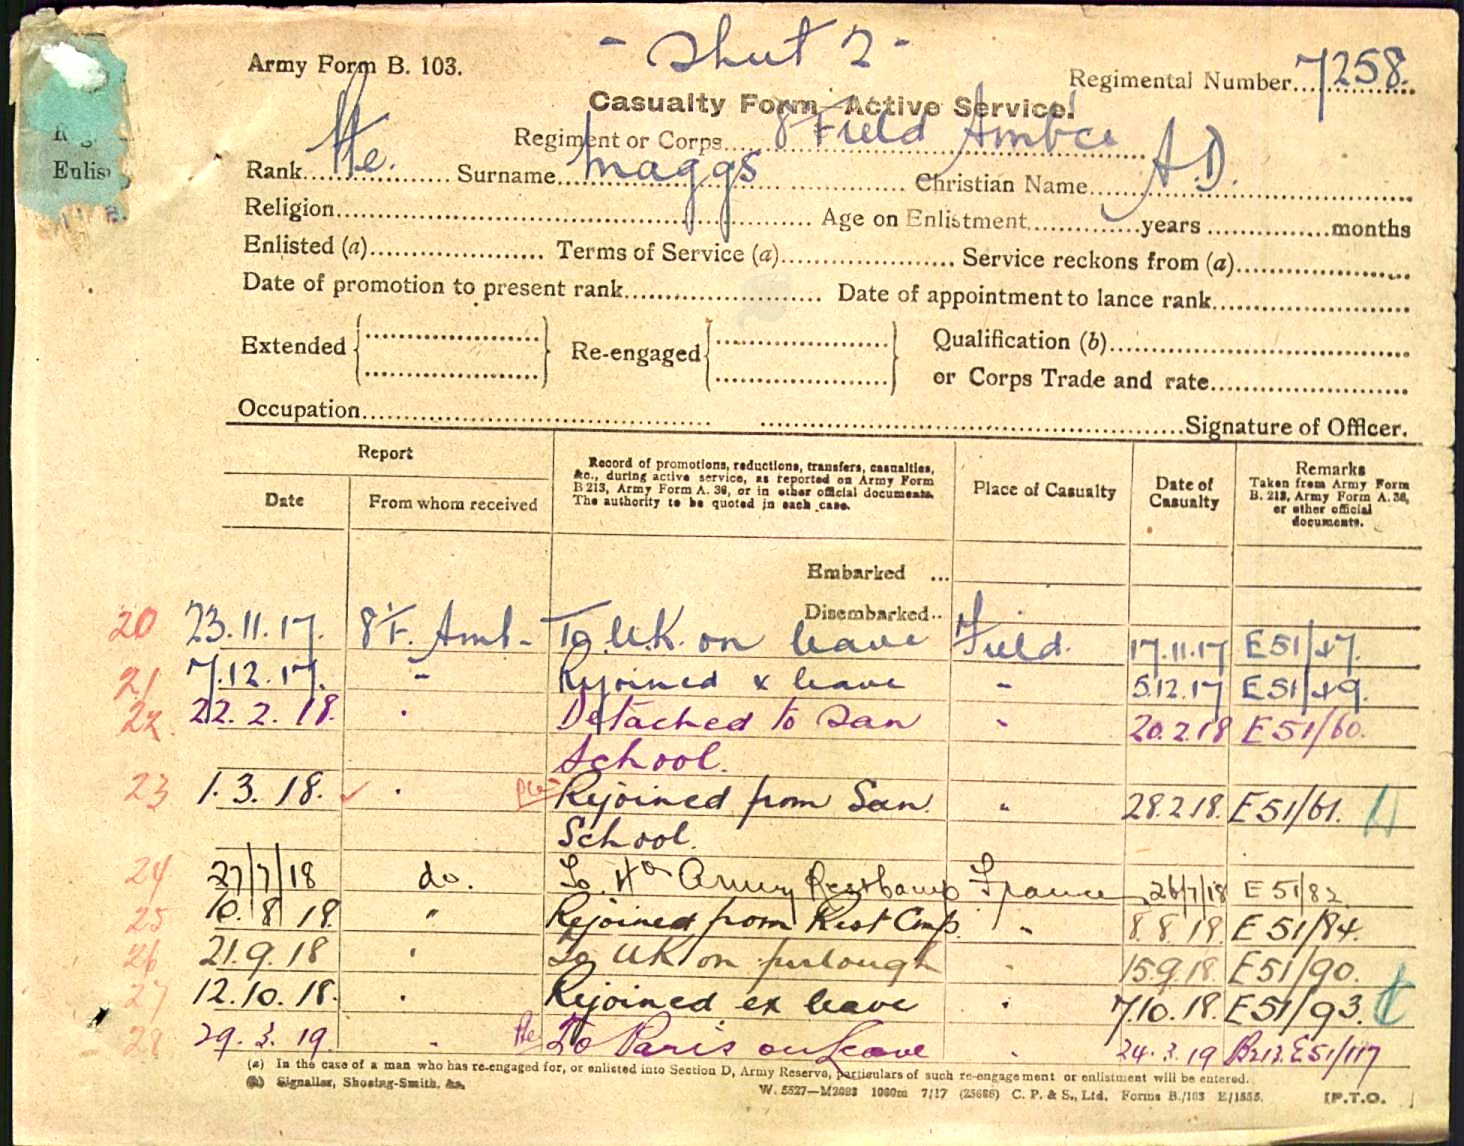 - Sheet 2 -
Army Form B. 103.
Regimental Number 7258.
Casualty Form—Active Service.
Regiment or Corps 8 Field Ambce
Rank Pte. Surname Maggs Christian Name A.D.
Religion Age on Enlistment years months
Enlisted (a) Terms of Service (a) Service reckons from (a)
Date of promotion to present rank Date of appointment to lance rank
Extended Re-engaged Qualification (b)
or Corps Trade and rate
Occupation Signature of Officer.
Enlis
Report
Date From whom received
Record of promotions, reductions, transfers, casualties,
&c., during active service, as reported on Army Form
B 213, Army Form A. 36, or in other official documents.
The authority to be quoted in each case.
Place of Casualty
Date of
Casualty
Remarks
Taken from Army Form
B. 213, Army Form A. 36,
or other official
documents.
Embarked ...
Disembarked..
20 23.11.17. 8 F. Amb- To U.K. on leave Field. 17.11.17 E51/47.
21 7.12.17. - Rejoined x leave - 5.12.17 E51/49.
22 22.2.18. " Detached to San " 20.2.18 E51/60.
School.
23 1.3.18. " Rejoined from San. " 28.2.18. E51/61.
School.
24 27/7/18 do. To 4th Army Rest Camp France 26/7/18 E 51/82.
25 10.8.18. " Rejoined from Rest Cmp. " 8.8.18. E 51/84.
26 21.9.18 " To UK on furlough " 15.9.18. E51/90.
27 12.10.18. " Rejoined ex leave " 7.10.18. E51/93.
28 29.3.19. " Pte To Paris on Leave " 24.3.19 B213.E51/117
(a) In the case of a man who has re-engaged for, or enlisted into Section D, Army Reserve, particulars of such re-engagement or enlistment will be entered.
(b) Signaller, Shoeing-Smith, &c.
W. 5527—M2093 1000m 7/17 (25686) C. P. & S., Ltd. Forms B./103 E/1555. [P.T.O.